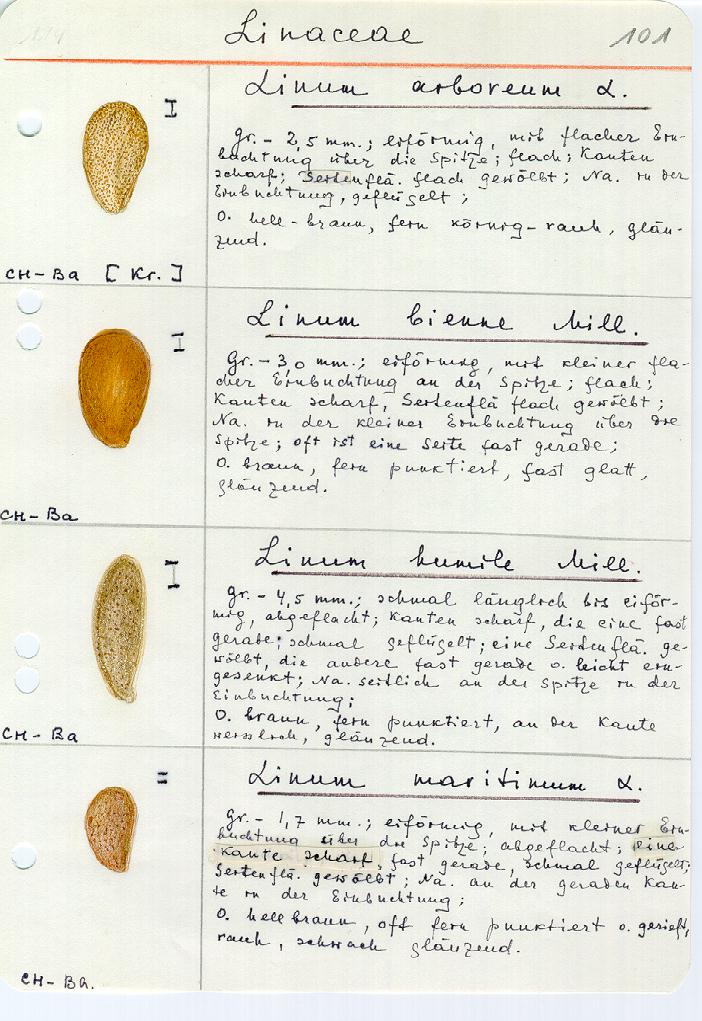 Linaceae
101
Linum arboreum L.
gr. - 2,5 mm.; eiförmig, mit flacher Ein-
buchtung über die Spitze; flach; Kanten
scharf; Seitenflä. flach gewölbt; Na. in der
Einbuchtung, geflügelt;
O. hell-braun, fein körnig-rauh, glän-
zend.
CH-Ba [Kr.]
Linum bienne Mill.
Gr. - 3,0 mm.; eiförmig, mit kleiner fla-
cher Einbuchtung an der Spitze; flach;
Kanten scharf, Seitenflä flach gewölbt;
Na. in der kleiner Einbuchtung über die
Spitze; oft ist eine Seite fast gerade;
O. braun, fein punktiert, fast glatt,
glänzend.
CH-Ba
Linum humile Mill.
gr. - 4,5 mm.; schmal länglich bis eiför-
mig, abgeflacht; Kanten scharf, die eine fast
gerade; schmal geflügelt; eine Seitenflä. ge-
wölbt, die andere fast gerade o. leicht ein-
gesenkt; Na. seitlich an der Spitze in der
Einbuchtung;
O. braun, fein punktiert, an der Kante
weisslich, glänzend.
CH-Ba
Linum maritimum L.
Gr. - 1,7 mm.; eiförmig, mit kleiner Ein-
buchtung über die Spitze; abgeflacht; eine
Kante scharf, fast gerade, schmal geflügelt;
Seitenflä. gewölbt; Na. an der geraden Kan-
te in der Einbuchtung;
O. hellbraun, oft fein punktiert o. gerieft,
rauh, schwach glänzend.
CH-Ba.